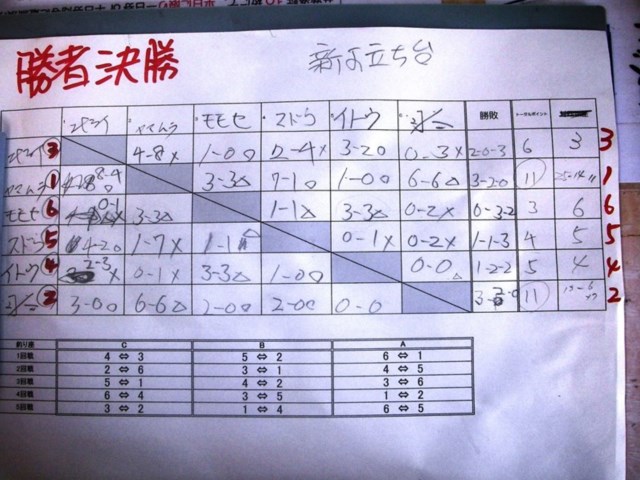 勝者決勝 新お立ち台
ヤマムラ モモセ スドウ イトウ 勝敗 トータルポイント
③ 4-8× 1-0○ 2-4× 3-2○ 0-3× 2-0-3 6 3 3
ヤマムラ① 8-4 3-3△ 7-1○ 1-0○ 6-6△ 3-2-0 11 1
モモセ⑥ 0-1 3-3△ 1-1△ 3-3△ 0-2× 0-3-2 3 6 6
スドウ⑤ 4-2○ 1-7× 1-1△ 0-1× 0-2× 1-1-3 4 5 5
イトウ④ 2-3× 0-1× 3-3△ 1-0○ 0-0△ 1-2-2 5 4 4
② 3-0○ 6-6△ 2-0○ 2-0○ 0-0 11 2
釣り座 C B A
1回戦 4 ⇔ 3 5 ⇔ 2 6 ⇔ 1
2回戦 2 ⇔ 6 3 ⇔ 1 4 ⇔ 5
3回戦 5 ⇔ 1 4 ⇔ 2 3 ⇔ 6
4回戦 6 ⇔ 4 3 ⇔ 5 1 ⇔ 2
5回戦 3 ⇔ 2 1 ⇔ 4 6 ⇔ 5